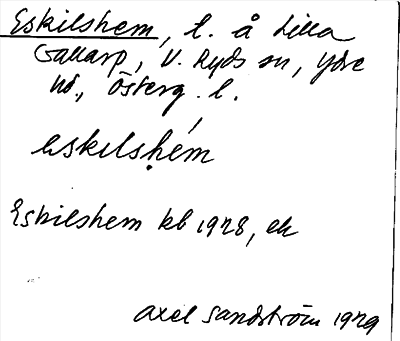 Eskilshem, l. å Lilla
Gallarp, V. Ryds sn, Ydre
hd., Österg. l.
eskilshém
Eskilshem kb 1928, ek
Axel Sandström 1929